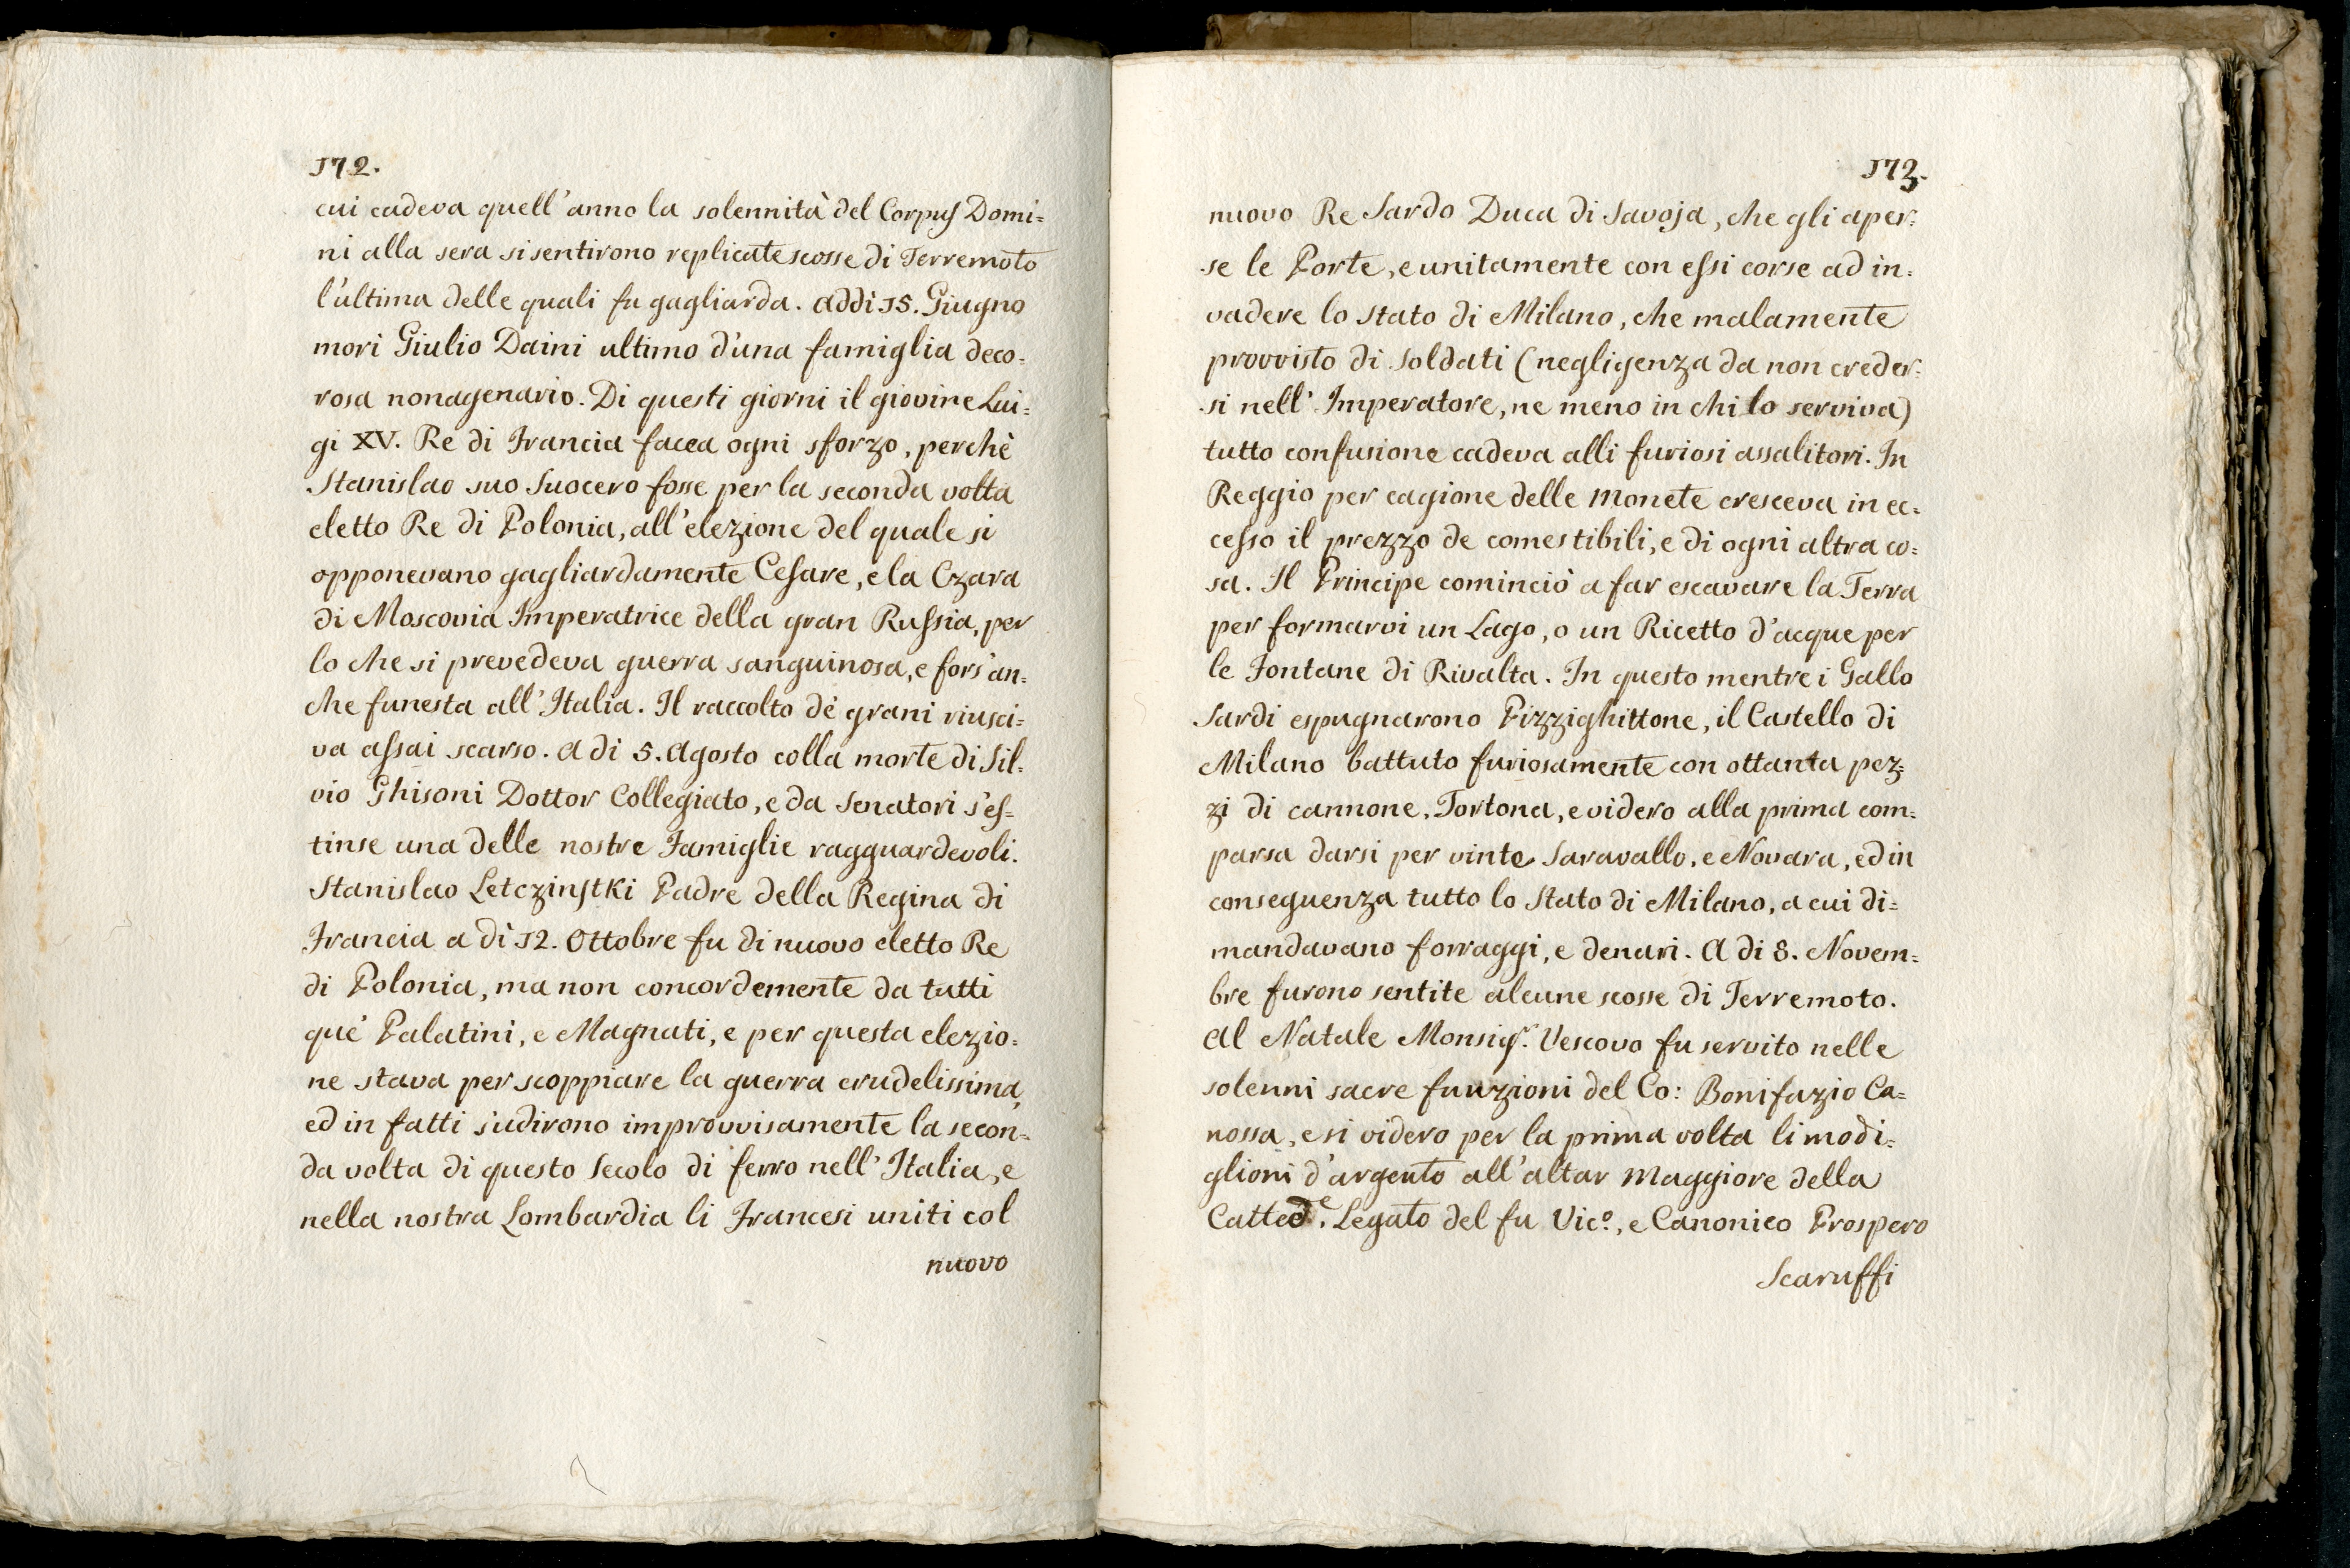 172.
cui cadeva quell'anno la solennità del Corpus Domi=
ni alla sera si sentirono replicate scosse di Terremoto
l'ultima delle quali fu gagliarda. addi 15. Giugno
mori Giulio Daini ultimo d'una famiglia deco=
rosa nonagenario. Di questi giorni il giovine Lui=
gi XV. Re di Francia facea ogni sforzo, perchè
Stanislao suo Suocero fosse per la seconda volta
eletto Re di Polonia, all'elezione del quale si
opponevano gagliardamente Cesare, e la Czara
di Moscovia Imperatrice della gran Russia, per
lo che si prevedeva guerra sanguinosa, e fors'an=
che funesta all'Italia. Il raccolto de' grani riusci=
va assai scarso. A di 5. Agosto colla morte di Sil=
vio Ghisoni Dottor Collegiato, e da Senatori s'es=
tinse una delle nostre Famiglie ragguardevoli.
Stanislao Letczinstki Padre della Regina di
Francia a di 12. Ottobre fu di nuovo eletto Re
di Polonia, ma non concordemente da tutti
que' Palatini, e Magnati, e per questa elezio=
ne stava per scoppiare la guerra crudelissima,
ed in fatti s'udirono improvvisamente la secon=
da volta di questo Secolo di ferro nell'Italia, e
nella nostra Lombardia li Francesi uniti col
nuovo
173.
nuovo Re Sardo Duca di Savoja, che gli aper=
se le Porte, e unitamente con essi corse ad in=
vadere lo Stato di Milano, che malamente
provvisto di Soldati (negligenza da non creder=
si nell'Imperatore, ne meno in chi lo serviva)
tutto confusione cadeva alli furiosi assalitori. In
Reggio per cagione delle Monete cresceva in ec=
cesso il prezzo de comestibili, e di ogni altra co=
sa. Il Principe cominciò a far escavare la Terra
per formarvi un Lago, o un Ricetto d'acque per
le Fontane di Rivalta. In questo mentre i Gallo
Sardi espugnarono Pizzighittone, il Castello di
Milano battuto furiosamente con ottanta pez=
zi di cannone, Tortona, e videro alla prima com=
parsa darsi per vinte Saravallo, e Novara, ed in
conseguenza tutto lo Stato di Milano, a cui di=
mandavano forraggi, e denari. A di 8. Novem=
bre furono sentite alcune scosse di Terremoto.
Al Natale Monsigr. Vescovo fu servito nelle
solenni sacre funzioni del Co: Bonifazio Ca=
nossa, e si videro per la prima volta li modi=
glioni d'argento all'altar Maggiore della
Catted.e Legato del fu Vic.o, e Canonico Prospero
Scaruffi